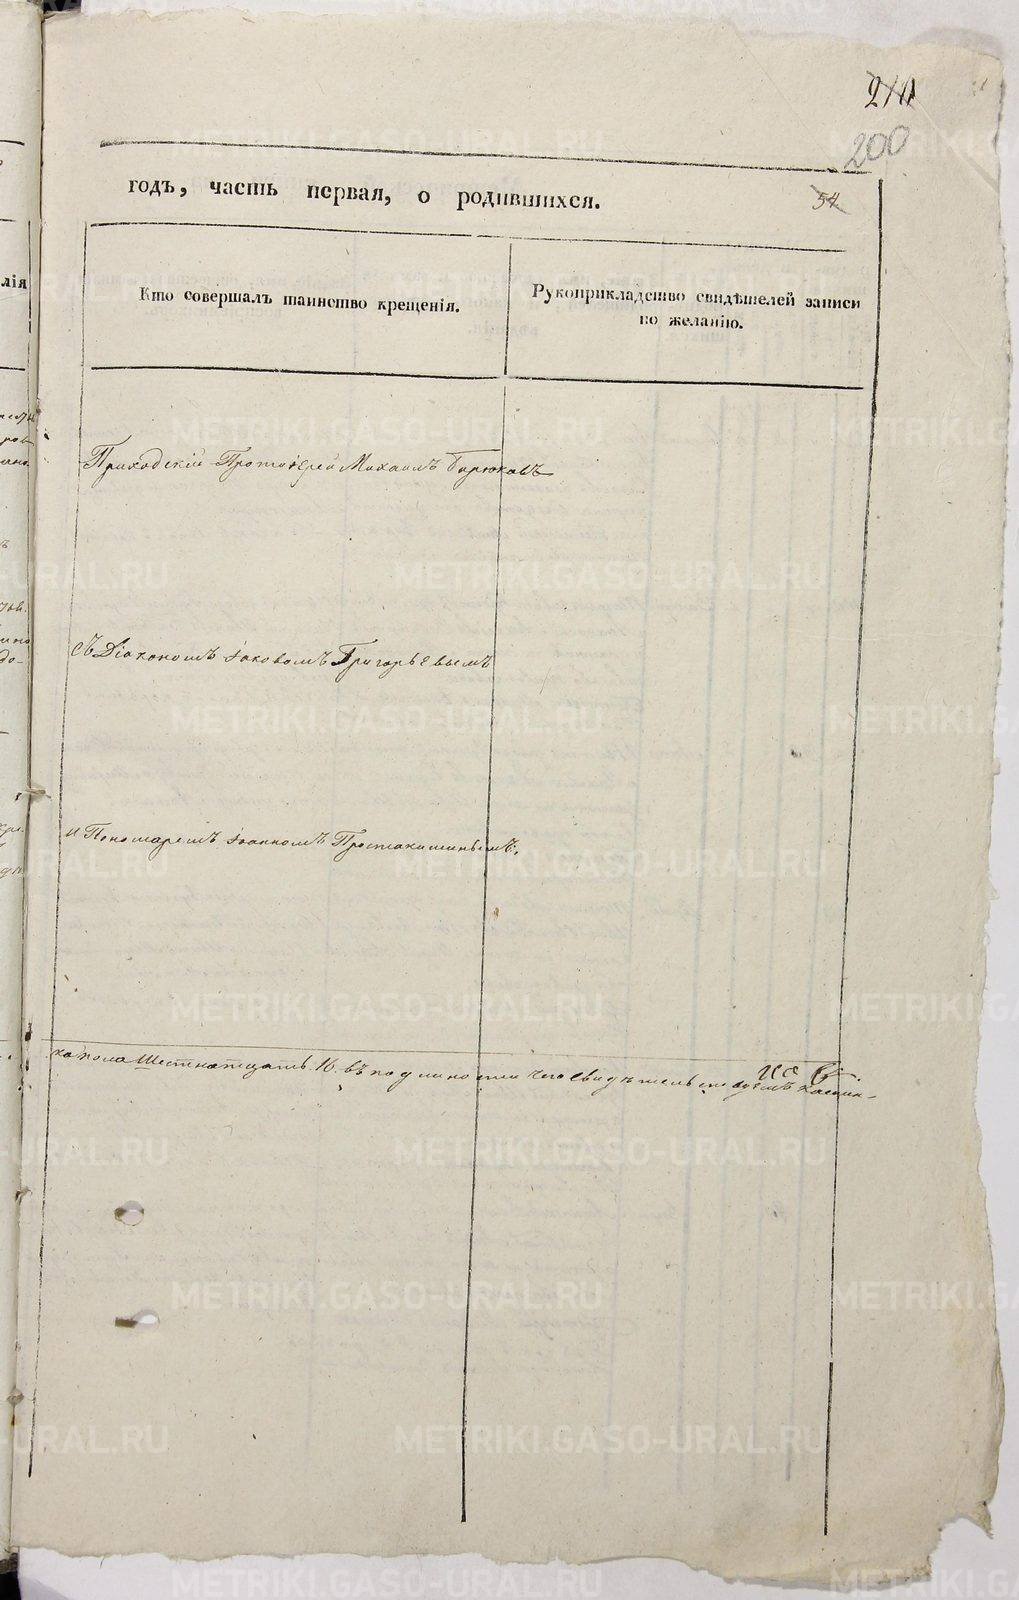 210
200
годъ, часть первая, о родившихся.
54
Кто совершалъ таинство крещенія.
Рукоприкладство свидѣтелей записи
по желанію.
лія
Приходскій Протоіерей Михаилъ Бирюковъ
съ Діакономъ Іаковомъ Григорьевымъ
и Пономаремъ Іоанномъ Простакишинымъ.
ка пола Шестнатцать 16. въ подлиности чего свидѣтельствуемъ
METRIKI.GASO-URAL.RU